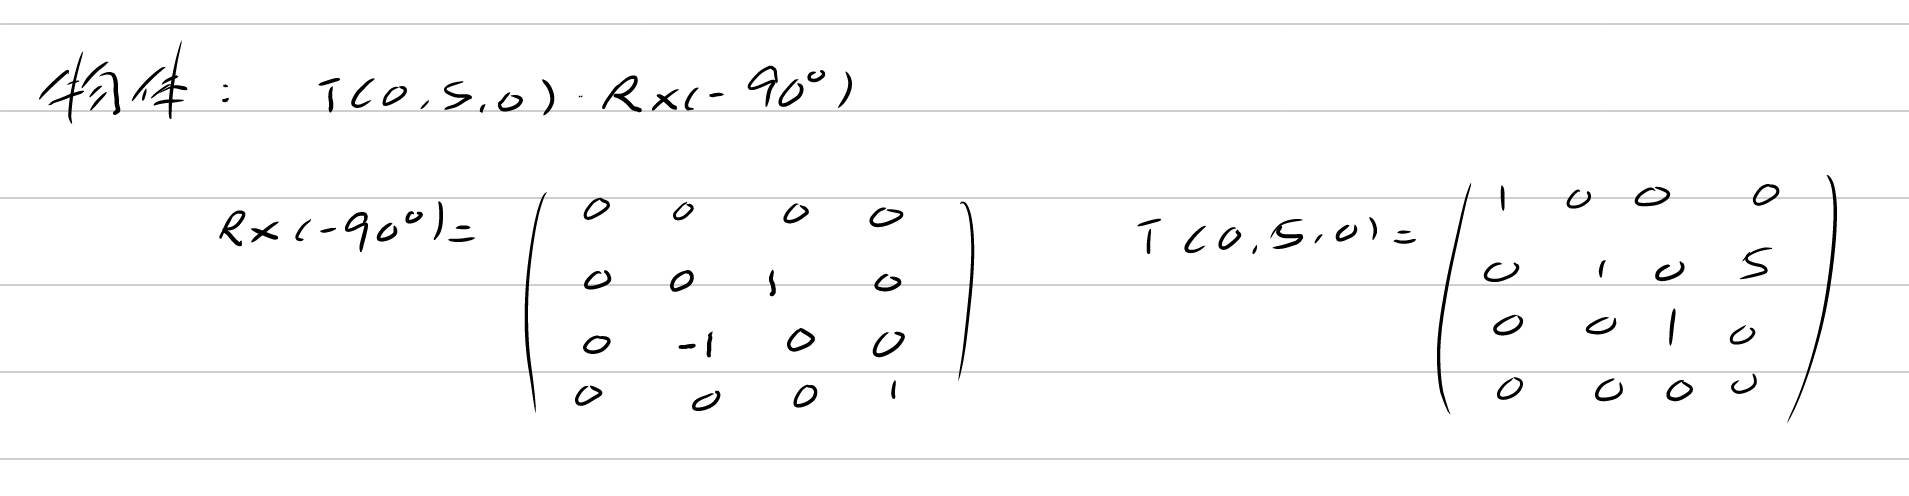 物体: T(0,5,0)·Rx(-90°)
Rx(-90°)= ( 0 0 0 0 T(0,5,0)= ( 1 0 0 0
0 0 1 0 0 1 0 5
0 -1 0 0 0 0 1 0
0 0 0 1 ) 0 0 0 0 )